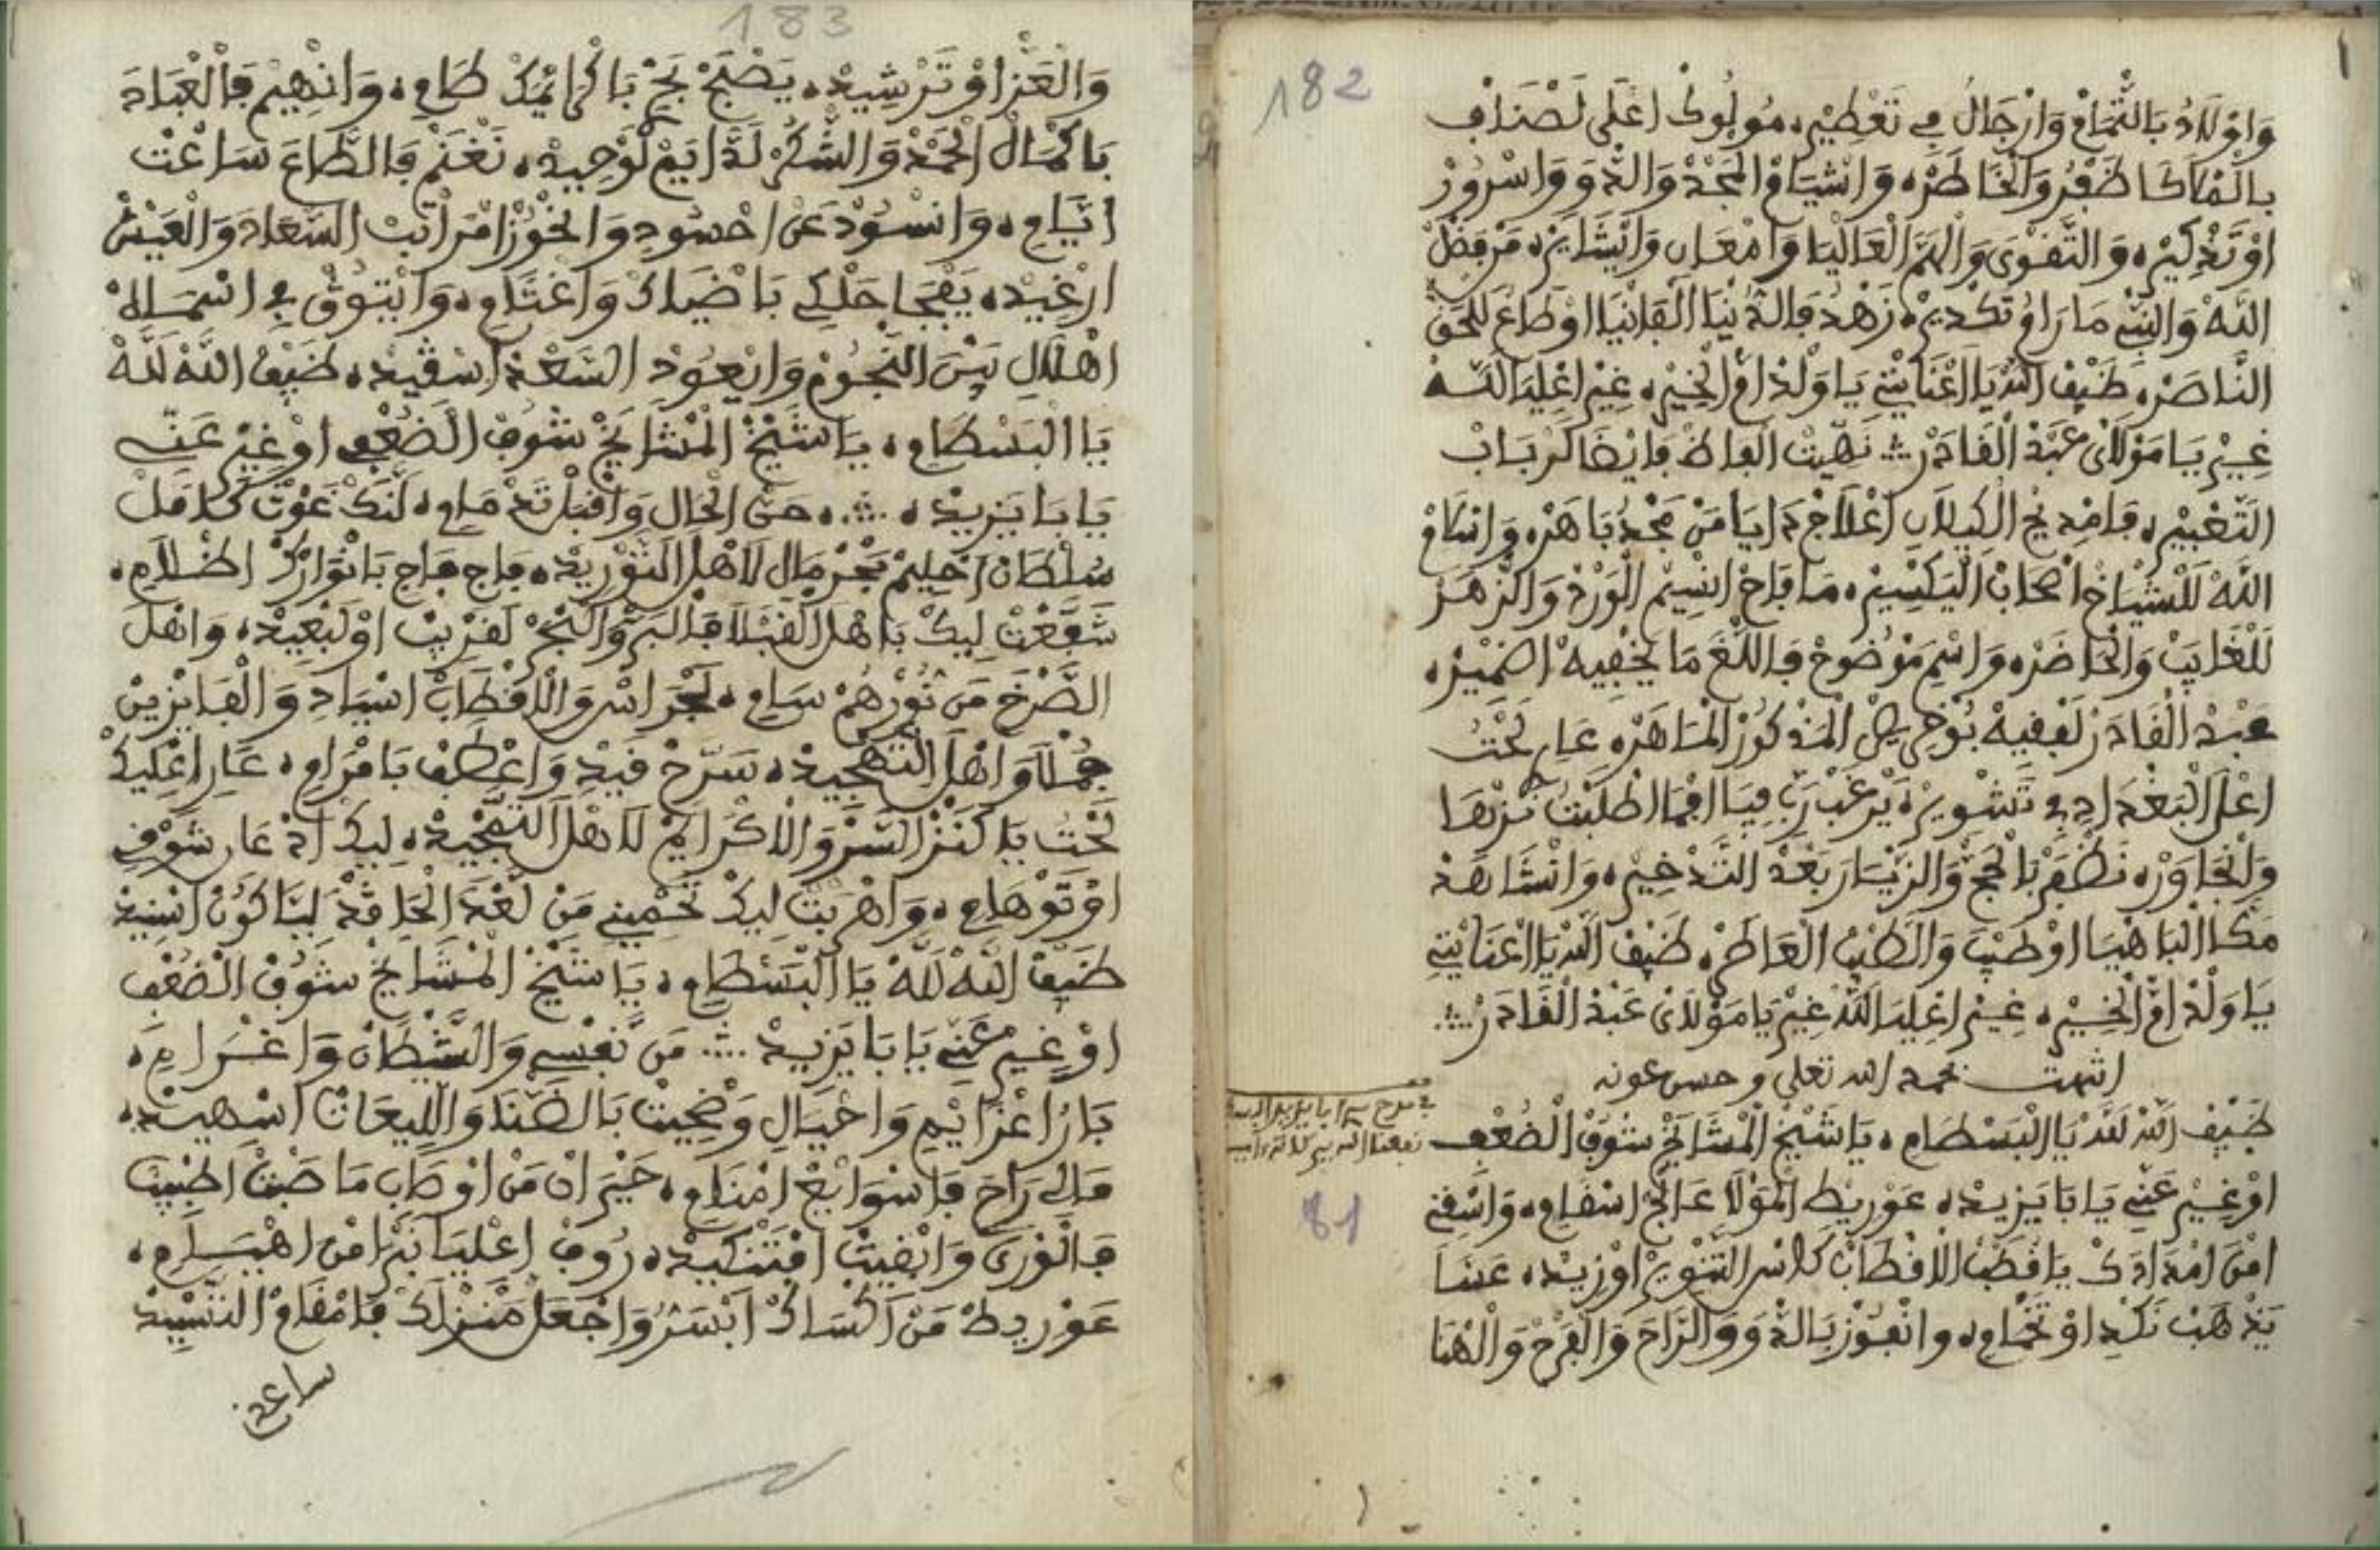 182
وَاوْلَادُ بَالتّْمَامْ وَارْجَالُ فِي تَعْطِيرْ، مُولُوكْ اعْلَى لَصْنَافْ
بِالْمْكَاكَا ظَفْرُ وَالْخَاطَرْ، وَانْشْيَاخْ الْمَجْدْ وَالذّْوَ وَاسْرُورْ
اوْ تَذْكِيرْ، وَالتَّقْوَى وَالْهَمَّ الْعَالْيَا وَامْعَانِ وَابْشَايَرْ، مَنْ فَضْلْ
اللَّهْ وَالنّْبِي مَا رَاوْ تَكْدِيرْ، زَهْدُ فَالدُّنْيَا الْفَانْيَا اوْطَاعُ لَلْحَقّْ
النَّاصَرْ، ضَيْفْ اللَّهْ يَا اعْنَايْتِي يَا وَلْدْ امّْ الْخِيرْ، غِيرْ اعْلِيَا اللَّهْ
غِيرْ يَا مَوْلَايْ عَبْدْ الْقَادَرْ ؞ نَهِّيتْ الْفَاظْ فَايْضَا كَرْبَابْ
التَّعْبِيرْ، فَامْدِيحْ الْكِيلَانِ اعْلَاجْ دَايَا مَنْ مَجْدُ بَاهَرْ، وَاسْلَامْ
اللَّهْ لَلْشْيَاخْ اصْحَابْ الْيَكْسِيرْ، مَا فَاحْ انْسِيمْ الْوَرْدْ وَالزّْهَرْ
لَلْغَايَبْ وَالْحَاضَرْ، وَاسْمِ مَوْضُوحْ فَاللّْغَ مَا يَخْفِيهْ اضْمِيرْ،
عَبْدْ الْقَادَرْ لَفْقِيهْ بُوخْرِيصْ الْمَذْكُورْ الْمَاهَرْ، عَارِ لَحْتُ
اعْلَى الْبَغْدَادِي فِي تَشْوِيرْ، يَرْغَبْ رَبِّ فِيَا افْمَا اطْلَبْتُ نَزْهَا
وَانْجَاوَرْ، نَظْفَرْ بَالْحَجّْ وَالزّْيَارَ بَعْدْ التَّدْخِيرْ، وَانْشَاهَدْ
مَكَّا الْبَاهْيَا اوْطَيْبَ وَالطِّيبْ الْعَاطَرْ، ضَيْفْ اللَّهْ يَا اعْنَايْتِي
يَا وَلْدْ امّْ الْخِيرْ، غِيرْ اعْلِيَا اللَّهْ غِيرْ يَا مَوْلَايْ عَبْدْ الْقَادَرْ ؞
انتهت بحمد الله تعلى وحسن عونه
ضَيْفْ اللَّهْ لَلَّهْ يَا الْبَسْطَامِي، يَا شَيْخْ الْمْشَايَخْ شُوفْ الْضُعْفِ
اوْ غِيرْ عَنِّي يَا بَا يَزِيدْ، عَوْرِيطْ الْمَوْلَا عَالَجْ اسْقَامِ، وَاسْقِنِي
امْنْ امْدَادَكْ يَا قُطْبْ الْاقْطَابْ كَاسْ التَّنْوِيرْ اوْزِيدْ، عَسَا
يَذْهَبْ نَكْدِ اوْ تَخْمَامِ، وانْفُوزْ بَالذّْوَ وَالرَّاحَ وَالْفَرْحْ وَالْهْنَا
في مدح سيدي ابا يزيد
نفعنا الله
81
183
وَالْعَزّْ اوْ تَرْشِيدْ، يَصْبَحْ نَجْ بَاكْرَايْمَكْ طَامِي، وَانْهِيمْ فَالْعْبَادَ
بَاكْمَالْ الْحَمْدْ وَالشُّكْرْ لَدَّايَمْ لَوْحِيدْ، نَغْنَمْ فَالطَّاعَ سَاعْتْ
ايَّامِي، وَانْسُودْ عَنْ احْسُودِي وَانْحُوزْ امْرَاتَبْ السَّعَادَ وَالْعَيْشْ
ارْغِيدْ، يَفْجَا حَلْكِي بَاضْيَاكْ وَاغْتَامِي، وَايْتُوقْ فِي اسْمَالْ
اهْلَالِ بَيْنْ النّْجُومْ وَايْعُودْ السَّعْدْ اسْقِيدْ، ضَيْفْ اللَّهْ لَلَّهْ
يَا الْبَسْطَامِي، يَا شَيْخْ الْمْشَايَخْ شُوفْ الْضُعْفِي اوْ غِيرْ عَنِّي
يَا بَا يَزِيدْ، ؞، حَنْ الْحَالِ وَاقْبَلْ تَدْمَامِي، لَنَّكْ غَوْتْ كَامَلْ
سُلْطَانْ احْلِيمْ بَحْرْ مَالِ لَاهْلْ التَّوْرِيدْ، فَاجِ فَاجِ بَانْوَارَكْ اظْلَامِي،
شَفَّعْتْ لِيكْ بَاهْلْ الْقَبْلَا فَالْبَرّْ وَالْبَحْرْ لَقْرِيبْ اوْلَبْعِيدْ، وَاهْلْ
الصَّرْخَ مَنْ نُورْهُمْ سَامِي، لَجْرَاسْ وَالْاقْطَابْ اسْيَادِي وَالْفَايْزِينْ
جُمْلَا وَاهْلْ التَّهْجِيدْ، سَرَّحْ قَيْدِي وَاعْطَفْ بَامْرَامِي، عَارِ اعْلِيكْ
لَحْتُ يَا كَنْزْ السَّرّْ وَالْاكْرَايَمْ لَاهْلْ التَّمْجِيدْ، لِيكْ ادْعَارِ شَوْقِي
اوْ تَوْهَامِي، وَاهْرَبْتْ لِيكْ تَحْمِينِي مَنْ لَغْدَ الْحَاقْدْ لِيَا كُونْ اسْنِيدْ
ضَيْفْ اللَّهْ لَلَّهْ يَا الْبَسْطَامِي، يَا شَيْخْ الْمْشَايَخْ شُوفْ الْضُعْفِ
اوْ غِيرْ عَنِّي يَا بَا يَزِيدْ ؞ مَنْ نَفْسِي وَالشَّيْطَانْ وَاغْرَامِي،
بَارُ اعْزَايْمِي وَاحْيَالِي وَضْحِيتْ بَالضّْنَا وَاللِّيعَاتْ اسْهِيدْ،
مَالِي رَاحَ فَاسْوَايَعْ امْنَامِي، حَيْرَانْ مَنْ اوْصَابِ مَا صَبْتْ اطْبِيبْ
فَالْوْرَى وَابْقِيتْ افْتَنْكِيدْ، رُوفْ اعْلِيَا نَبْرَا مْنْ اهْيَامِي،
عَوْرِيطْ مَنْ اكْسَاكْ ابْسَرُّ وَاجْعَلْ مَنْزْلَكْ فَامْقَامْ التَّسْيِيدْ
ساعد